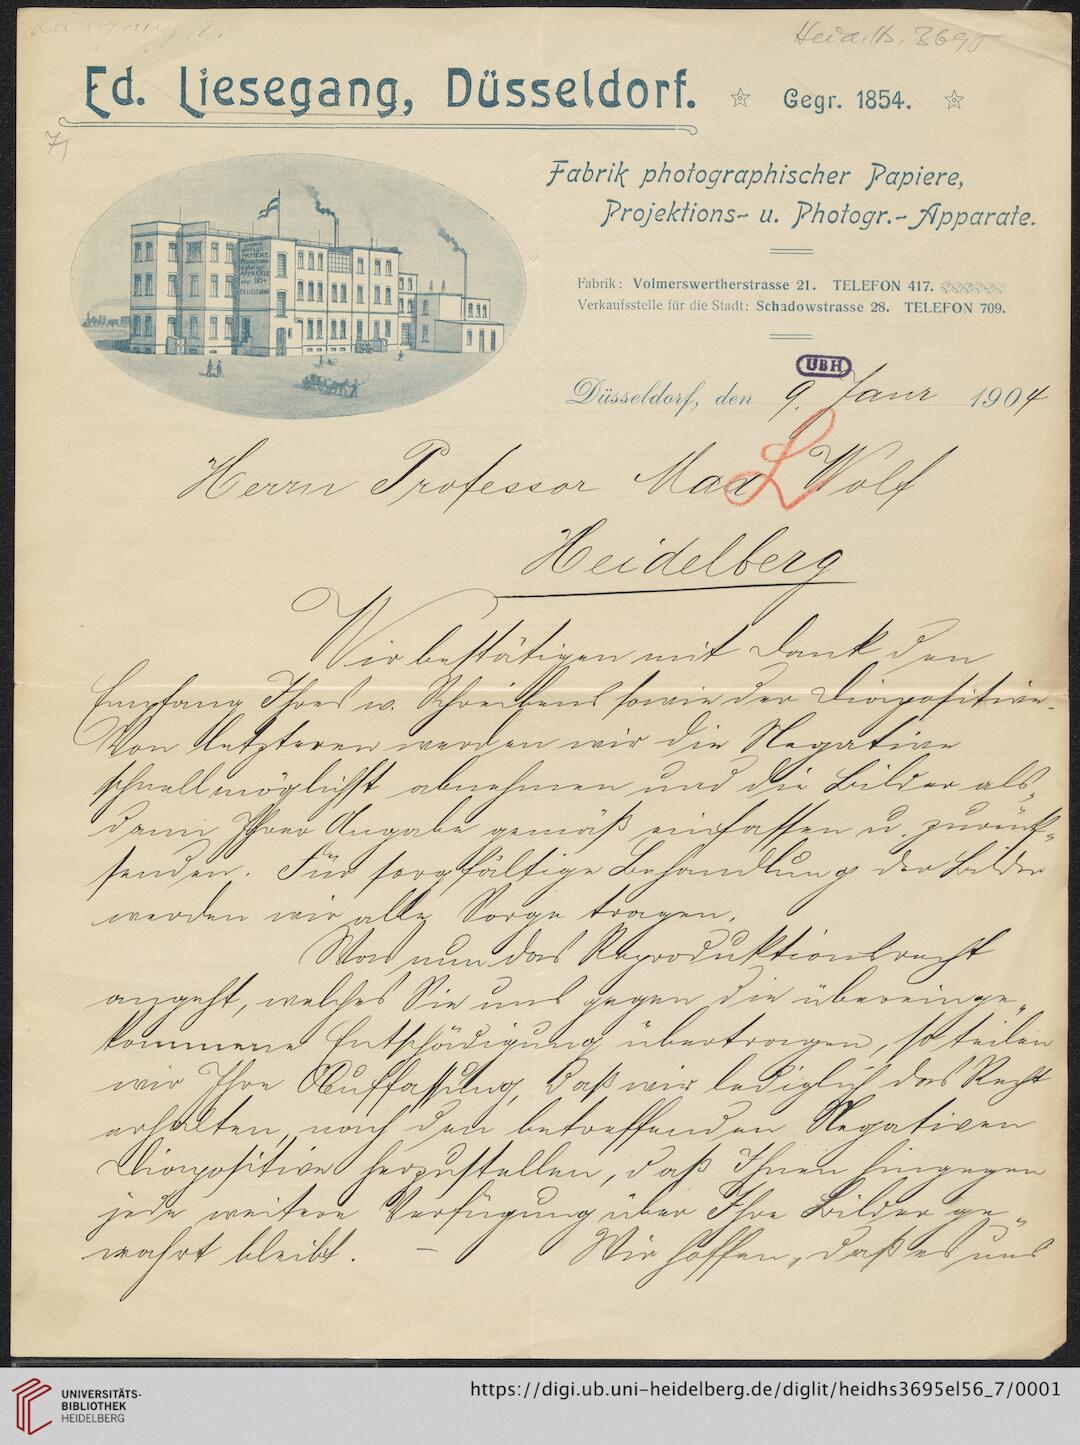 Heid. Hs. 3695
Ed. Liesegang, Düsseldorf. Gegr. 1854.
Fabrik photographischer Papiere,
Projektions- u. Photogr.- Apparate.
Fabrik: Volmerswertherstrasse 21. TELEFON 417.
Verkaufsstelle für die Stadt: Schadowstrasse 28. TELEFON 709.
UBH
Düsseldorf, den 9. Janr 1904
L
Herrn Professor Max Wolf
Heidelberg
Wir bestätigen mit Dank den
Empfang Ihres w. Schreibens sowie der Diapositive.
Von letzteren werden wir die Negative
schnellmöglichst abnehmen und die Bilder als-
dann Ihrer Angabe gemäß einfassen u. zurück-
senden. Für sorgfältige Behandlung der Bilder
werden wir alle Sorge tragen.
Was nun das Reproduktionsrecht
angeht, welches Sie uns gegen die übereinge-
kommene Entschädigung übertragen, so teilen
wir Ihre Auffassung, daß wir lediglich das Recht
erhalten, nach den betreffenden Negativen
Diapositive herzustellen, daß Ihnen hingegen
jede weitere Verfügung über Ihre Bilder ge-
wahrt bleibt. – Wir hoffen, daß es uns
UNIVERSITÄTS-
BIBLIOTHEK
HEIDELBERG
https://digi.ub.uni-heidelberg.de/diglit/heidhs3695el56_7/0001